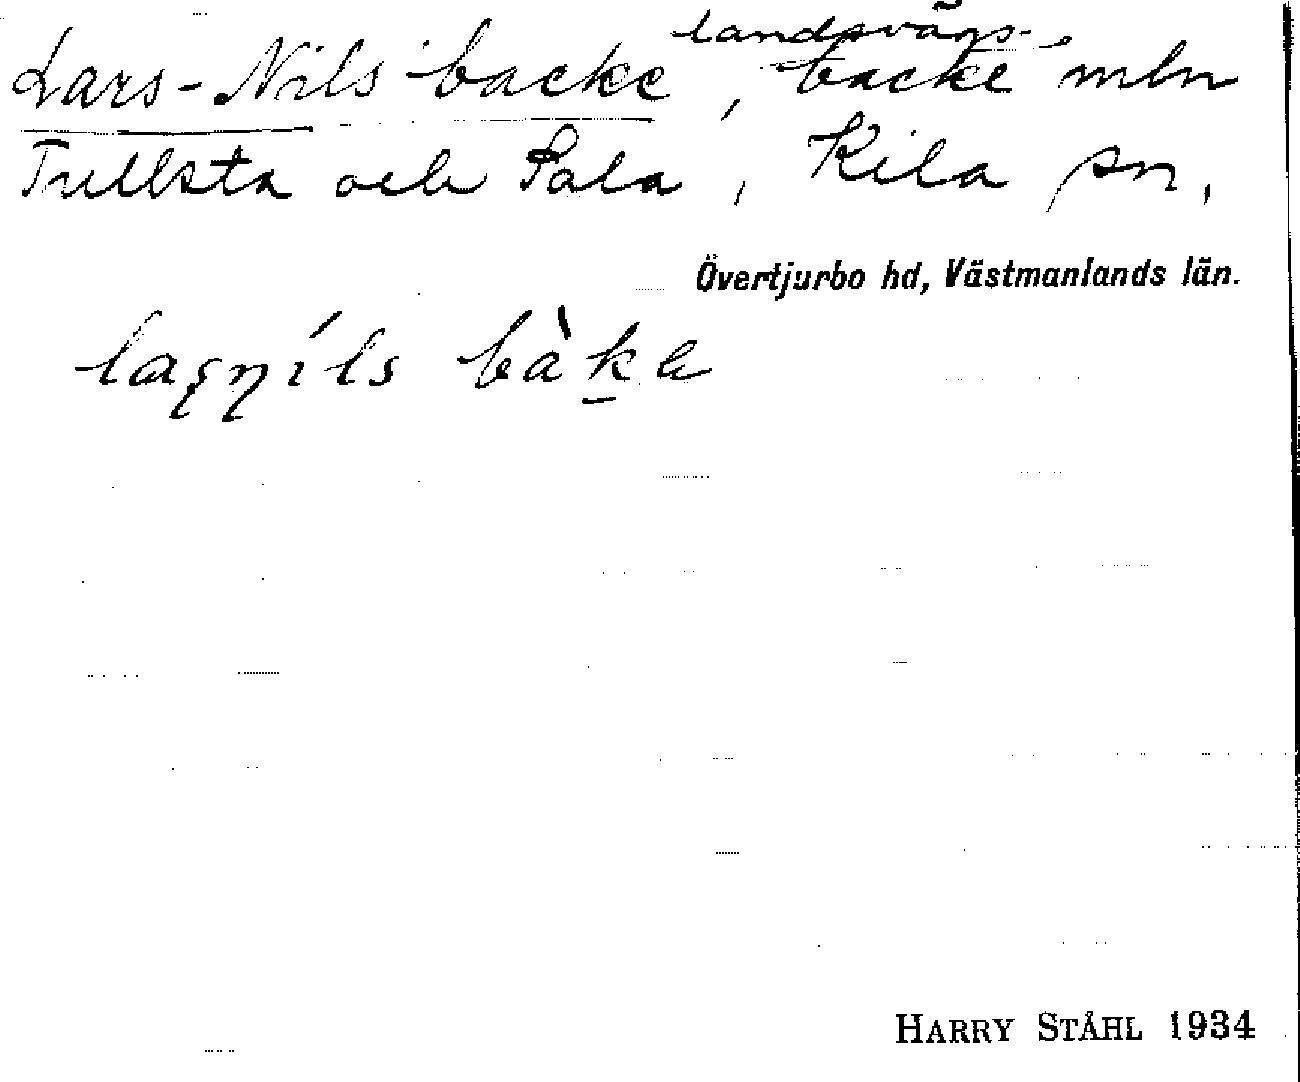 Lars-Nils backe, landsvägs-backe mln
Tullsta och Sala, Kila sn,
Övertjurbo hd, Västmanlands län.
HARRY STÅHL 1934